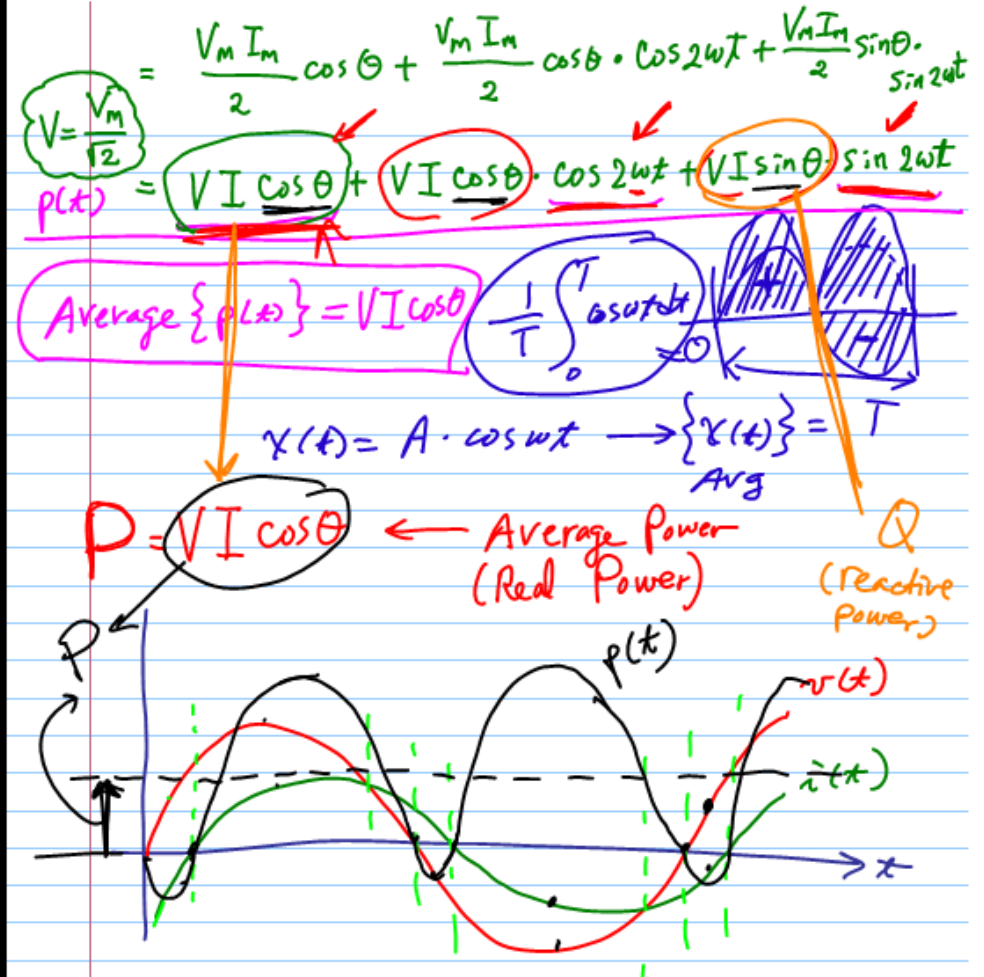 = V_m I_m / 2 cos θ + V_m I_m / 2 cosθ · Cos2ωt + V_m I_m / 2 sinθ · sin 2ωt
V = V_m / √2
p(t) = VI cosθ + VI cosθ · cos 2ωt + VI sinθ · sin 2ωt
Average {p(t)} = VI cosθ
1/T ∫₀ᵀ cosωtdt = 0
+ + −
T
x(t) = A · cosωt → {x(t)} Avg =
P = VI cosθ ← Average Power
(Real Power)
Q
(reactive
Power)
P
p(t)
v(t)
i(t)
t